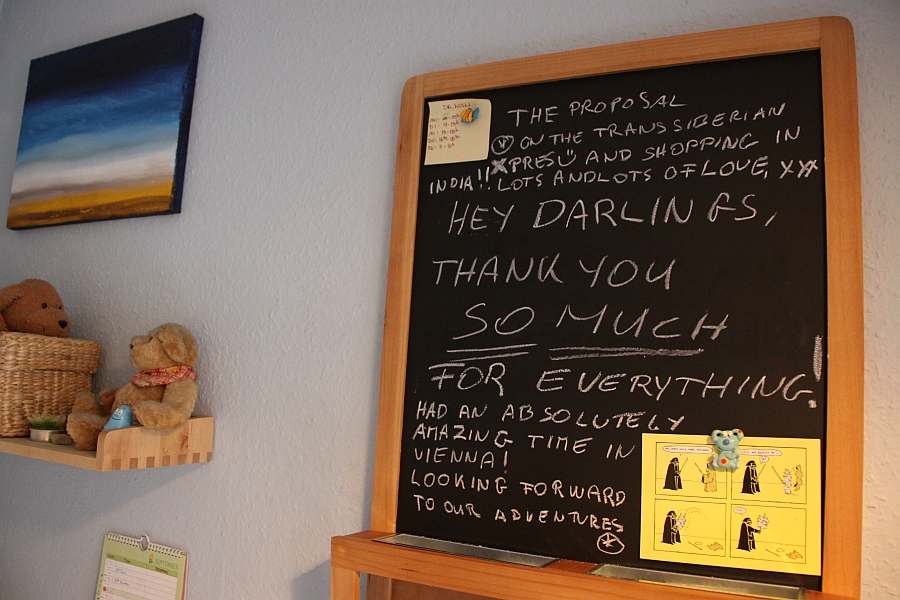 THE PROPOSAL
* ON THE TRANSSIBERIAN
XPRESÜ AND SHOPPING IN
INDIA!! LOTS ANDLOTS OF LOVE, XXX
HEY DARLINGS,
THANK YOU
SO MUCH
FOR EVERYTHING!
HAD AN ABSOLUTELY
AMAZING TIME IN
VIENNA!
LOOKING FORWARD
TO OUR ADVENTURES
*
SEPTEMBER